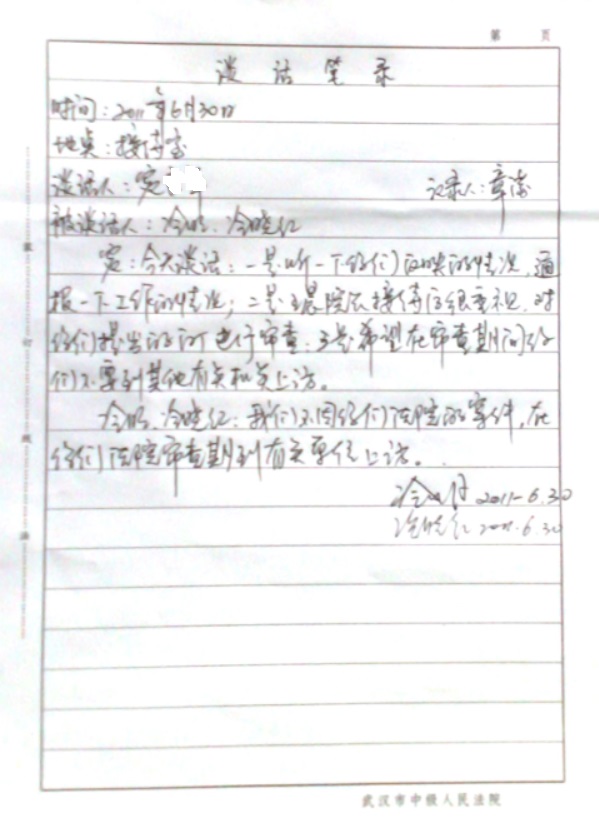 第 页
谈话笔录
时间：2011年6月30日
地点：接待室
谈话人：定 记录人：章涛
被谈话人：冷明、冷晓红
定：今天谈话：一是听一下你们反映的情况，通
报一下工作的情况；二是 院长接待后很重视，对
你们提出的 进行审查；三是希望在审查期间你
们不要到其他有关机关上访。
冷明、冷晓红：我们不因你们法院的案件，在
你们法院审查期到有关单位上访。
冷明 2011-6.30
冷晓红 2011.6.30
装订线
武汉市中级人民法院